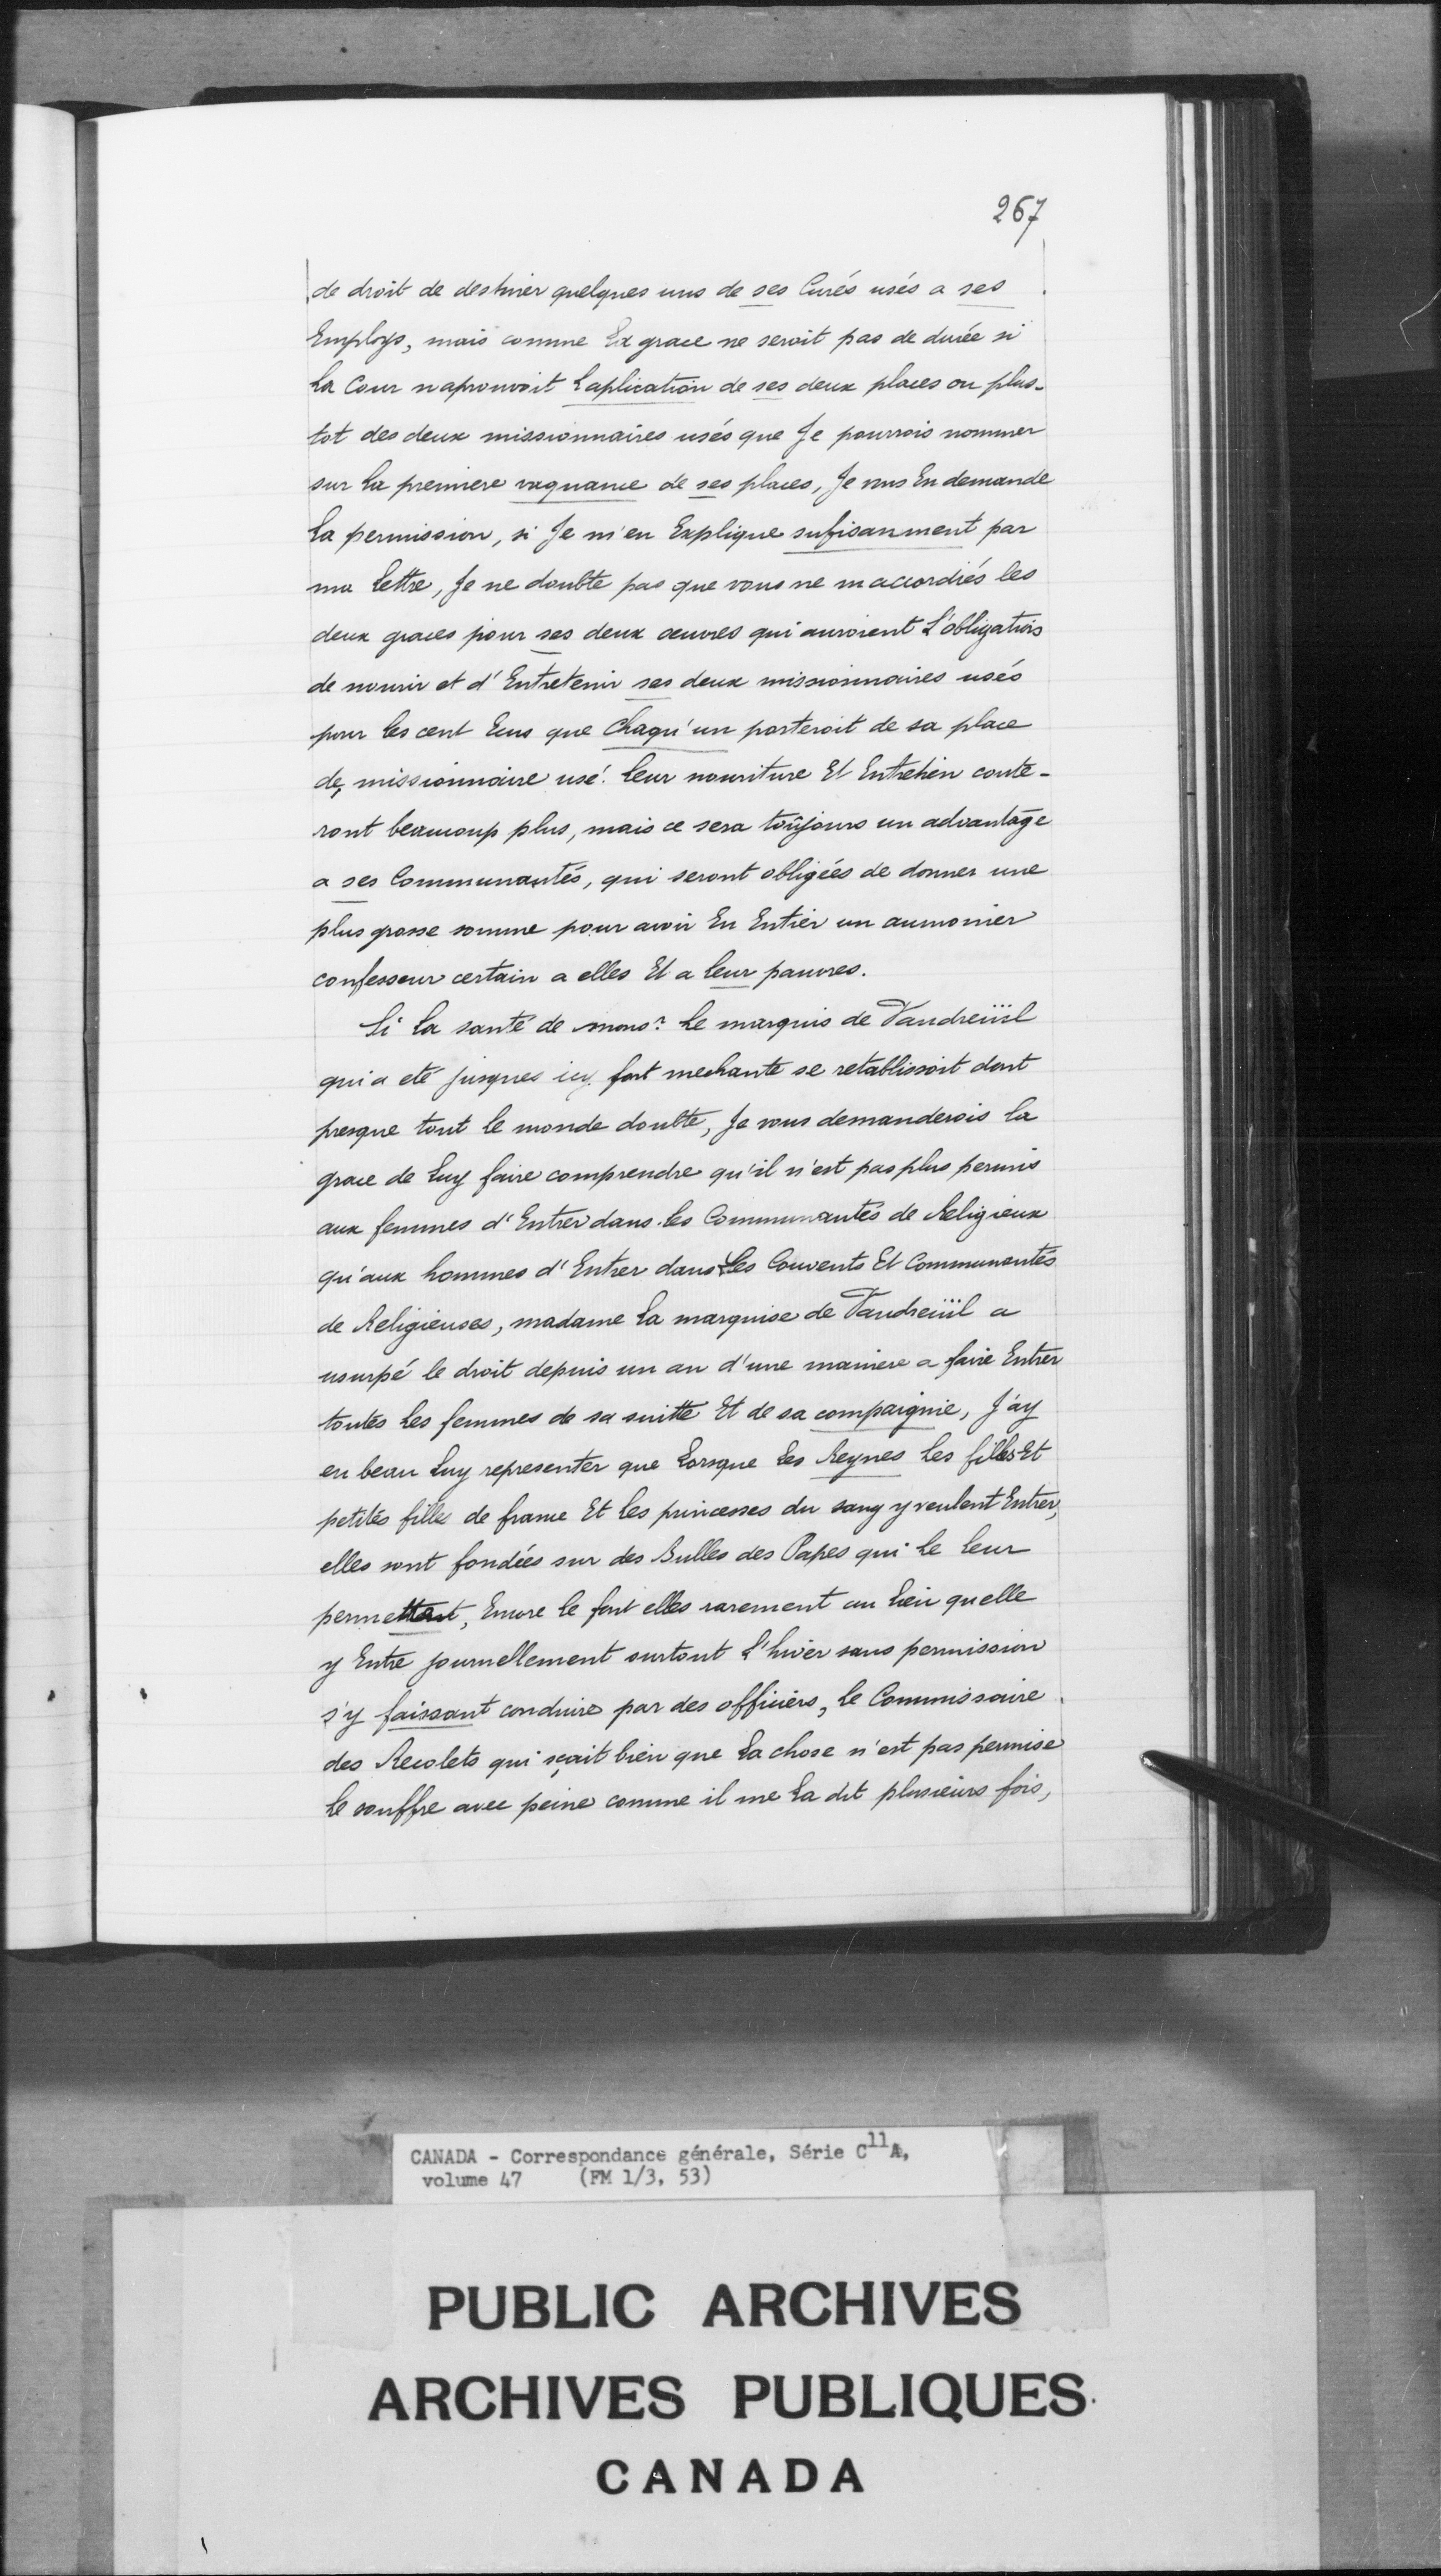 267
de droit de destiner quelques uns de ses Curés usés a ses
Employs, mais comme La grace ne seroit pas de durée si
La Cour n'aprouvoit Laplication de ses deux places ou plus-
tot des deux missionnaires usés que Je pourrois nommer
sur La premiere vaquance de ses places, Je vous En demande
La permission, si Je m'en Explique sufisanment par
ma Lettre, Je ne doubte pas que vous ne m accordiés les
deux graces pour ses deux œuvres qui auroient L'obligation
de nourir et d'Entretenir ses deux missionnaires usés
pour les cent Ecus que Chaqu'un porteroit de sa place
de, missionnaire usé. Leur nouriture Et Entretien coute-
ront beaucoup plus, mais ce sera toûjours un advantage
a ses Communautés, qui seront obligées de donner une
plus grosse somme pour avoir En Entier un aumonier
confesseur certain a elles Et a Leur pauvres.
Si La santé de mons.r Le marquis de Vaudreüil
qui a eté jusques icy fort mechante se retablissoit dont
presque tout le monde doubte, Je vous demanderois La
grace de Luy faire comprendre qu'il n'est pas plus permis
aux femmes d'Entrer dans les Communautés de Religieux
qu'aux hommes d'Entrer dans Les Couvents Et Communautés
de Religieuses, madame La marquise de Vaudreüil a
usurpé le droit depuis un an d'une maniere a faire Entrer
toutes Les femmes de sa suitte Et de sa compaignie, J'ay
eu beau Luy representer que Lorsque Les Reynes Les filles Et
petites filles de france Et Les princesses du sang y veulent Entrer,
elles sont fondées sur des Bulles des Papes qui Le Leur
permettent, Encore Le font elles rarement au Lieu quelle
y Entre journellement surtout L'hiver sans permission
s'y faissant conduire par des officiers, Le Commissaire
des Recolets qui sçait bien que La chose n'est pas permise
Le souffre avec peine comme il me La dit plusieurs fois,
CANADA - Correspondance générale, Série C11A,
volume 47 (FM 1/3, 53)
PUBLIC ARCHIVES
ARCHIVES PUBLIQUES
CANADA